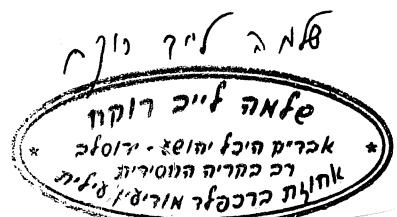 שלמה לייב רוקח
שלמה לייב רוקח
אברים היכל יהושע - ירוסלב
רב בקריה החסידית
אחוזת ברכפלד מודיעין עילית